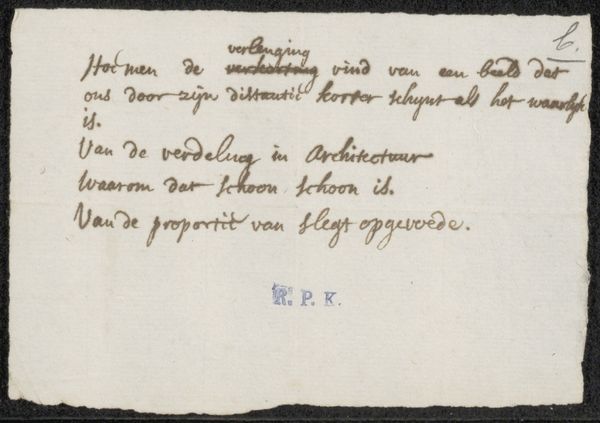 b.
verlenging
Hoe men de verkorting vind van een beeld dat
ons door zijn distantie korter schynt als het waarlyk
is.
Van de verdeling in Architectuur
Waarom dat schoon schoon is.
Van de proportie van slegt opgevoede.
R. P. K.